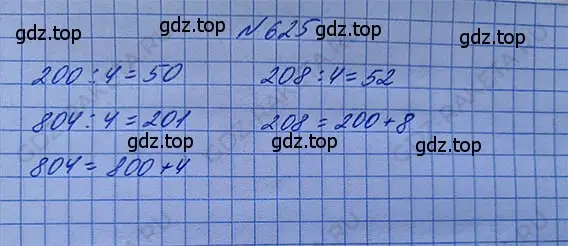 gdz.top gdz.top
№ 625
200 : 4 = 50 208 : 4 = 52
gdz.top gdz.top
804 : 4 = 201 208 = 200 + 8
gdz.top gdz.top
804 = 800 + 4
gdz.top gdz.top